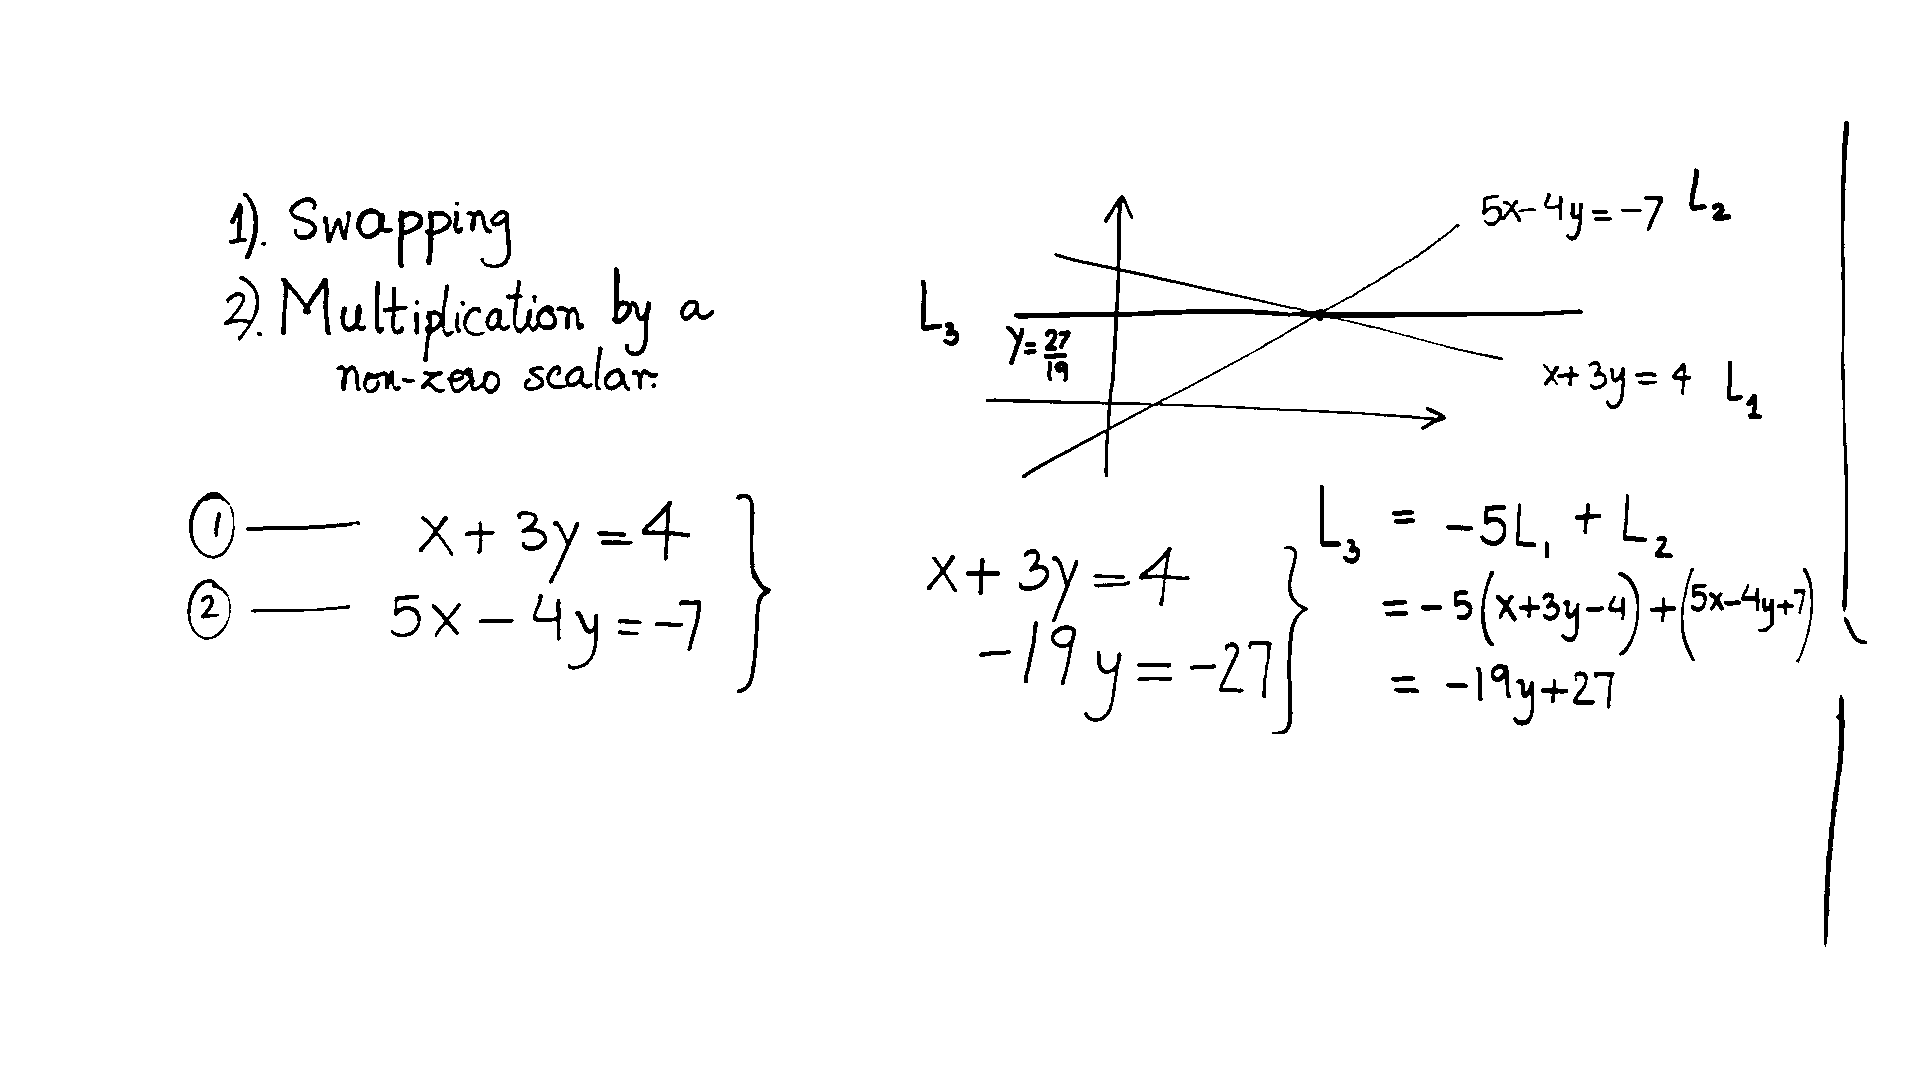 1). Swapping
2). Multiplication by a
non-zero scalar.
① — x + 3y = 4
② — 5x - 4y = -7
5x-4y=-7 L₂
L₃
y=27/19
x+3y=4 L₁
x + 3y = 4
-19y = -27
L₃ = -5L₁ + L₂
= -5(x+3y-4)+(5x-4y+7)
= -19y+27